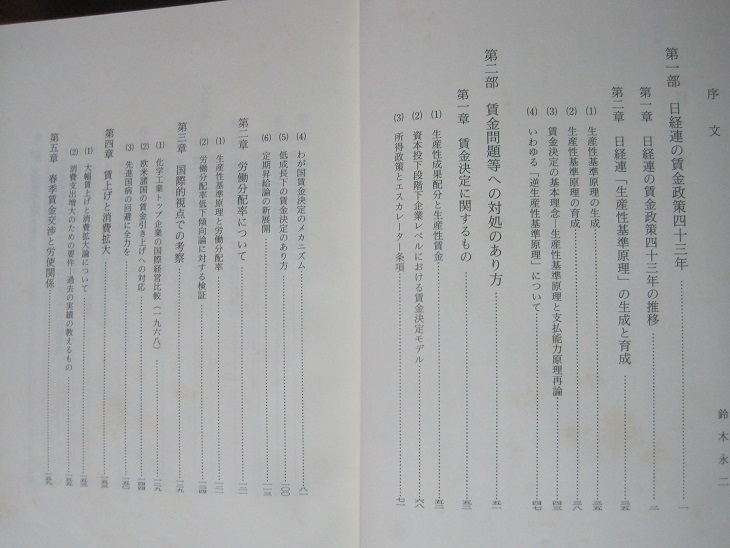 序文
鈴木永二
第一部 日経連の賃金政策四十三年……一
第一章 日経連の賃金政策四十三年の推移……二
第二章 日経連「生産性基準原理」の生成と育成……三五
(1) 生産性基準原理の生成……三五
(2) 生産性基準原理の育成……三八
(3) 賃金決定の基本理念―生産性基準原理と支払能力原理再論……四三
(4) いわゆる「逆生産性基準原理」について……四七
第二部 賃金問題等への対処のあり方……五一
第一章 賃金決定に関するもの……五二
(1) 生産性成果配分と生産性賃金……五二
(2) 資本投下段階下企業レベルにおける賃金決定モデル……六八
(3) 所得政策とエスカレーター条項……七一
(4) わが国賃金決定のメカニズム……八一
(5) 低成長下の賃金決定のあり方……一〇〇
(6) 定期昇給論の新展開……一一三
第二章 労働分配率について……一二一
(1) 生産性基準原理と労働分配率……一二一
(2) 労働分配率低下傾向論に対する検証……一二四
第三章 国際的視点での考察……一二九
(1) 化学工業トップ企業の国際経営比較(一九六八)……一二九
(2) 欧米諸国の賃金引き上げへの対応……一四四
(3) 先進国病の回避に全力を……一五〇
第四章 賃上げと消費拡大……一五三
(1) 大幅賃上げと消費拡大論について……一五三
(2) 消費支出増大のための要件―過去の実績の教えるもの……一五六
第五章 春季賃金交渉と労使関係